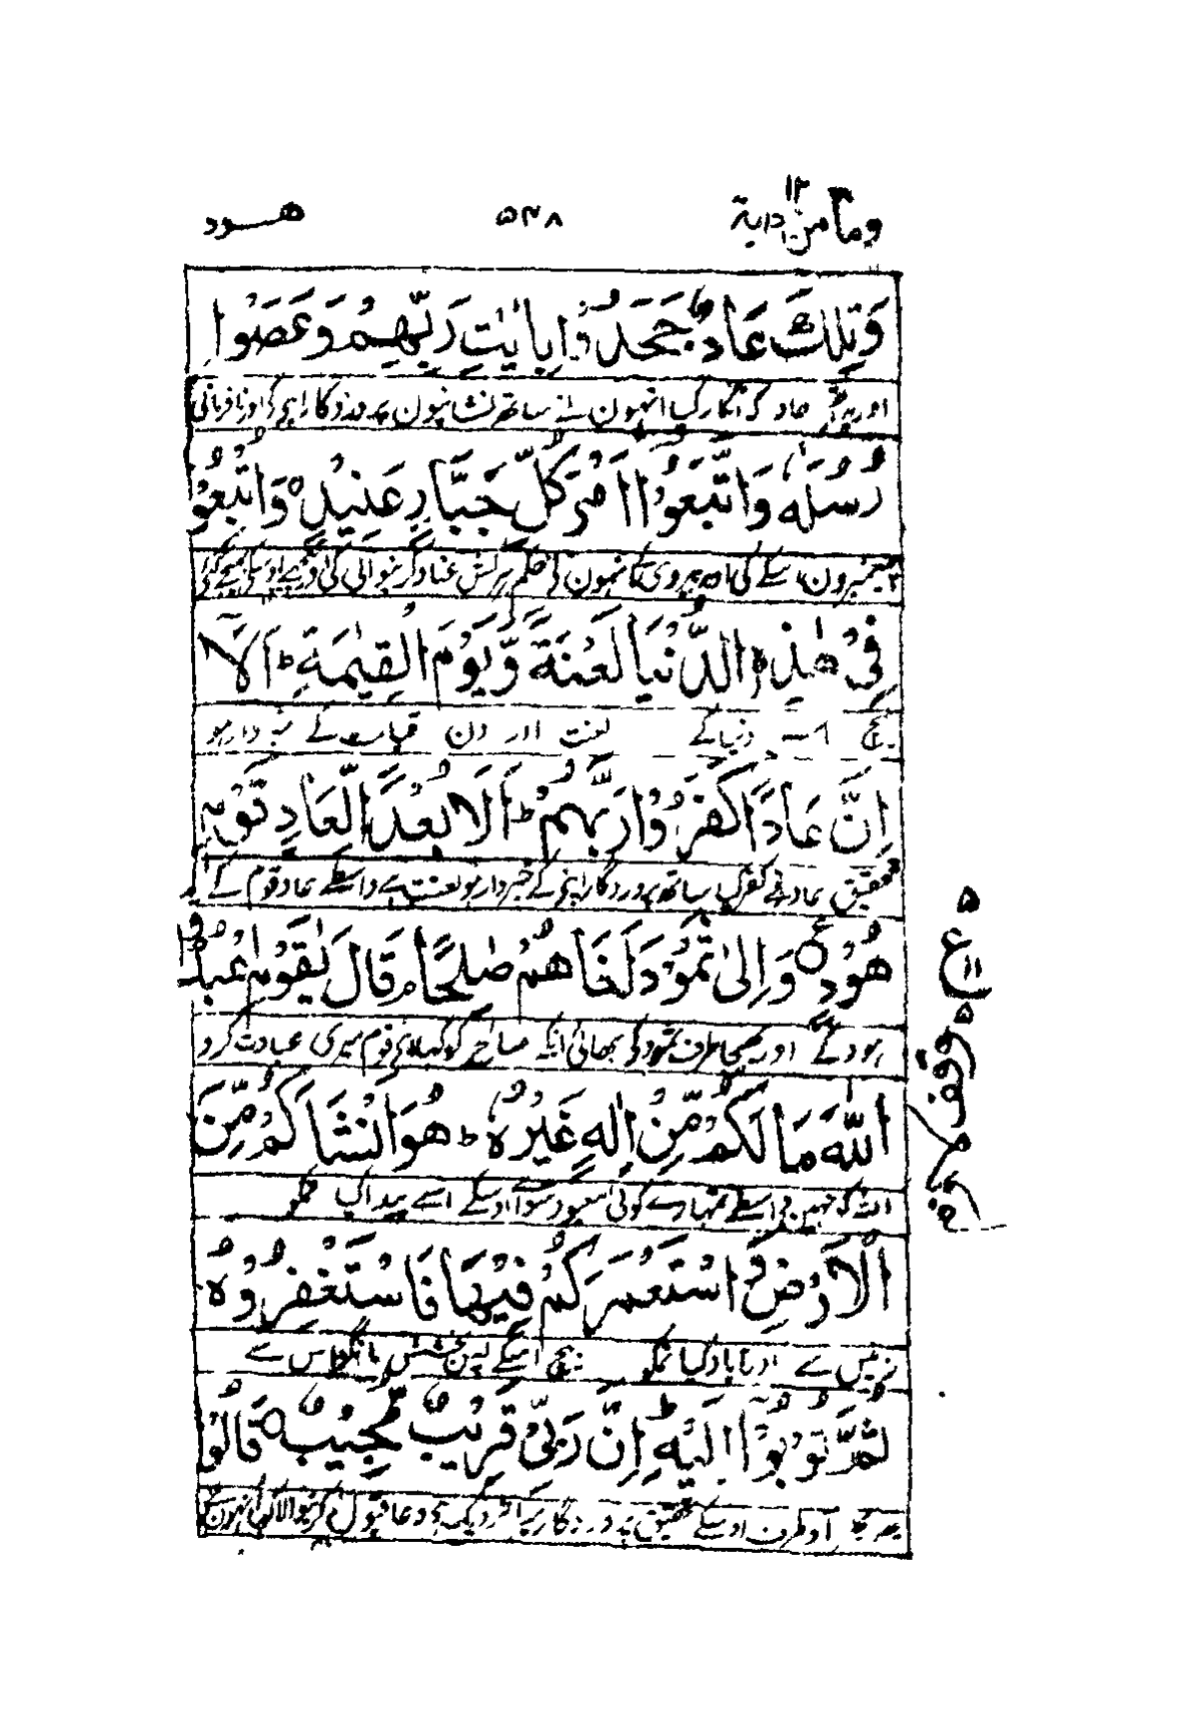 ومامن دابة ١٢
٥٤٨
هود
وَتِلْكَ عَادٌ جَحَدُوْا بِاٰيٰتِ رَبِّهِمْ وَعَصَوْا
اور یہ عاد کہ انکار کیا انہون نے ساتھ نشانیون پروردگار اپنے کے اور نافرمانی
رُسُلَهٗ وَاتَّبَعُوْۤا اَمْرَ كُلِّ جَبَّارٍ عَنِيْدٍ ۝ وَاُتْبِعُوْا
پیغمبرون اسکے کی اور پیروی کی انہون نے حکم ہر سرکش عناد کرنیوالی کی اور پیچھے
فِيْ هٰذِهِ الدُّنْيَا لَعْنَةً وَّيَوْمَ الْقِيٰمَةِ ؕ اَلَاۤ
بیچ اس دنیا کے لعنت اور دن قیامت کے خبردار ہو
اِنَّ عَادًا كَفَرُوْا رَبَّهُمْ ؕ اَلَا بُعْدًا لِّعَادٍ قَوْمِ
تحقیق عاد نے کفر کیا ساتھ پروردگار اپنے کے خبردار ہو لعنت ہے واسطے عاد قوم کے
هُوْدٍ ۝ وَاِلٰى ثَمُوْدَ اَخَاهُمْ صٰلِحًا ۘ قَالَ يٰقَوْمِ اعْبُدُوا
ہود کے اور بھیجا طرف ثمود کی بھائی انکے صالح کو کہا اے قوم میری عبادت کرو
اللّٰهَ مَا لَكُمْ مِّنْ اِلٰهٍ غَيْرُهٗ ؕ هُوَ اَنْشَاَكُمْ مِّنَ
اللہ کو نہین واسطے تمہارے کوئی معبود سوا اوسکے اسنے پیدا کیا تمکو
الْاَرْضِ وَاسْتَعْمَرَكُمْ فِيْهَا فَاسْتَغْفِرُوْهُ
زمین سے اور آباد کیا تمکو بیچ اسکے پس بخشش مانگو اس سے
ثُمَّ تُوْبُوْۤا اِلَيْهِ ؕ اِنَّ رَبِّيْ قَرِيْبٌ مُّجِيْبٌ ۝ قَالُوْا
پھر آو طرف اوسکے تحقیق پروردگار میرا نزدیک ہے دعا قبول کرنیوالا کہا انہون نے
٥
ع
١١
٥